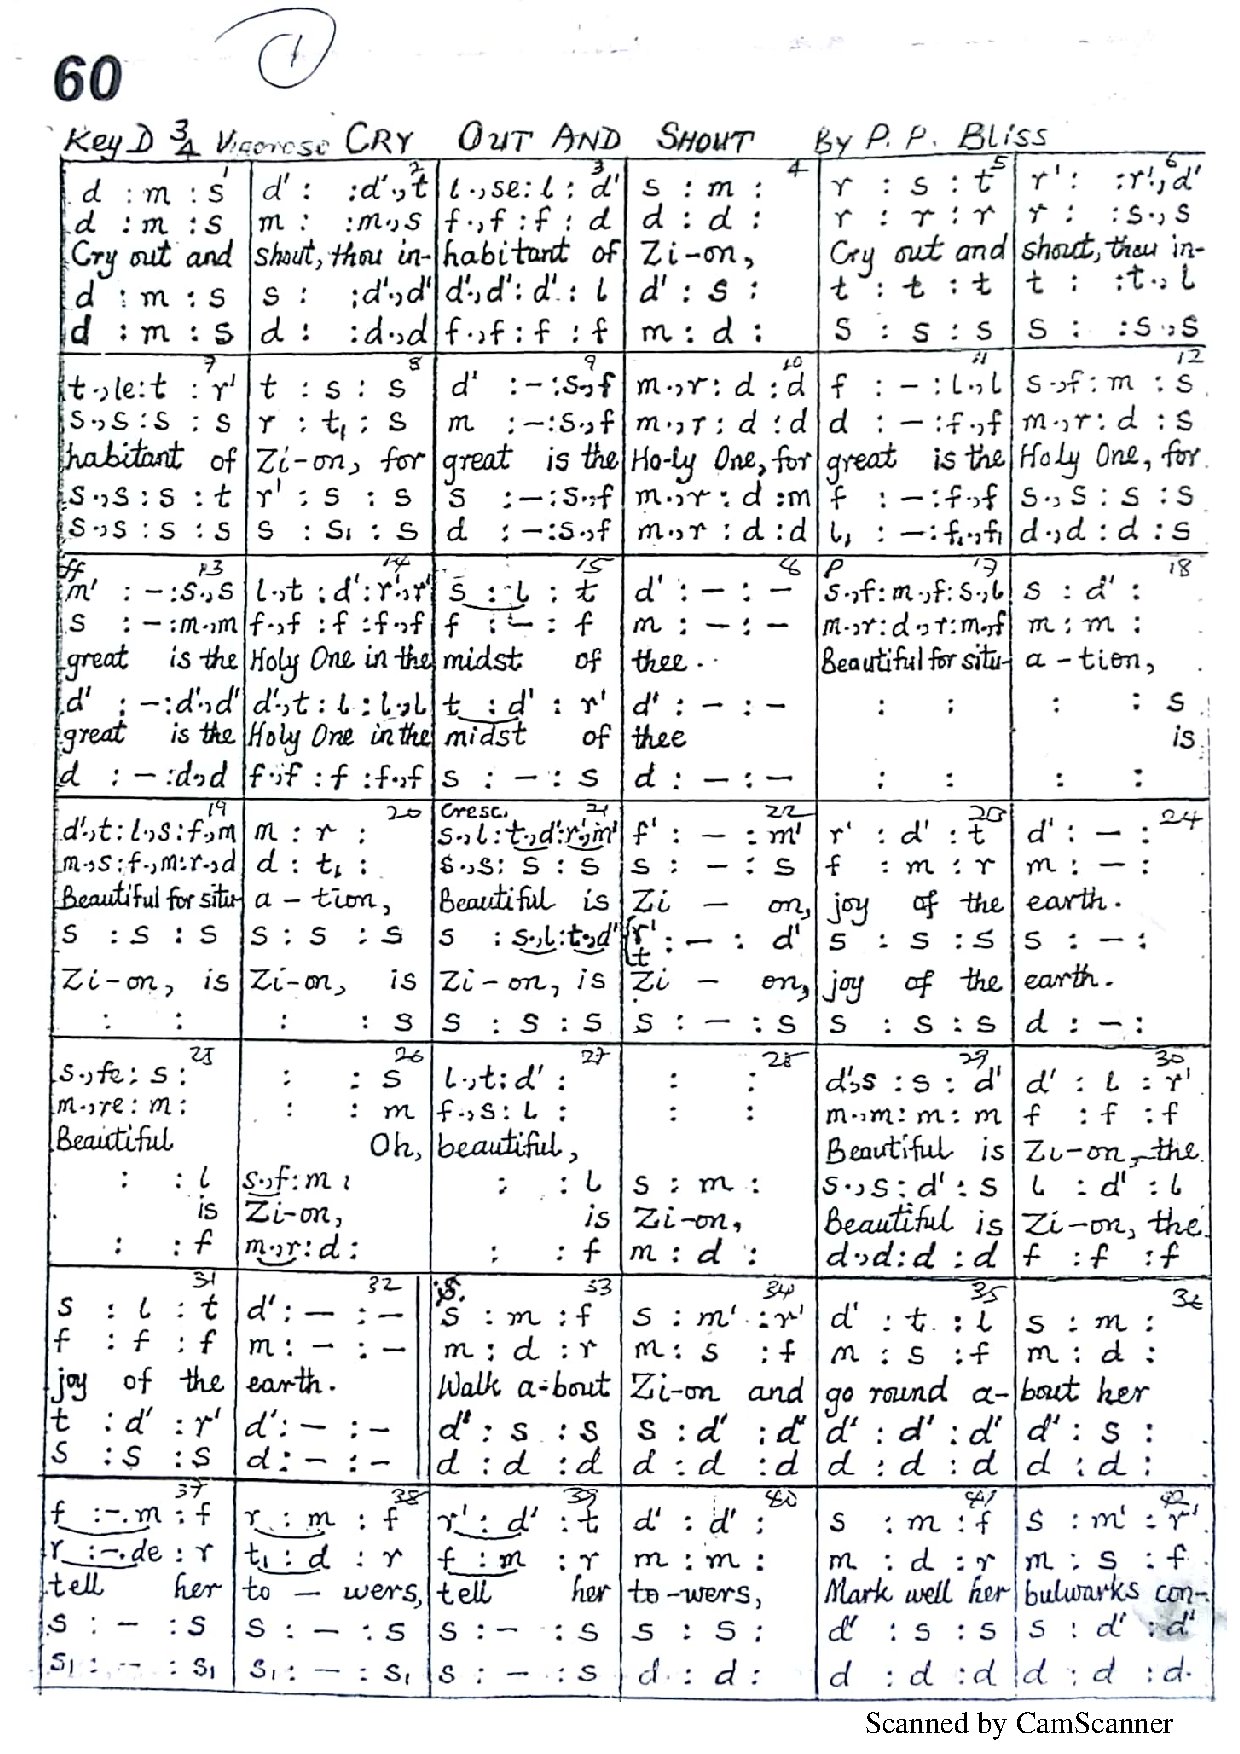 1
60
Key D 3/4 Vigoroso CRY OUT AND SHOUT By P. P. Bliss
1 2 3 4 5 6
d : m : s | d' : :d'.,t | l.,se:l : d' | s : m : | r : s : t | r' : :r'.,d'
d : m : s | m : :m.,s | f.,f : f : d | d : d : | r : r : r | r : :s.,s
Cry out and | shout, thou in- | habitant of | Zi-on, | Cry out and | shout, thou in-
d : m : s | s : :d'.,d' | d'.,d' : d' : l | d' : s : | t : t : t | t : :t.,l
d : m : s | d : :d.,d | f.,f : f : f | m : d : | s : s : s | s : :s.,s
7 8 9 10 11 12
t.,le:t : r' | t : s : s | d' : – :s.,f | m.,r : d : d | f : – : l.,l | s.,f : m : s
s.,s : s : s | r : t₁ : s | m : – :s.,f | m.,r : d : d | d : – :f.,f | m.,r : d : s
habitant of | Zi-on, for | great is the | Ho-ly One, for | great is the | Holy One, for
s.,s : s : t | r' : s : s | s : – :s.,f | m.,r : d : m | f : – :f.,f | s.,s : s : s
s.,s : s : s | s : s₁ : s | d : – :s.,f | m.,r : d : d | l₁ : – :f₁.,f₁ | d.,d : d : s
ff 13 14 15 16 p 17 18
m' : – :s.,s | l.,t : d' : r'.,r' | s : l : t | d' : – : – | s.,f : m.,f : s.,l | s : d' :
s : – :m.,m | f.,f : f : f.,f | f : – : f | m : – : – | m.,r : d.,r : m.,f | m : m :
great is the | Holy One in the | midst of | thee. | Beautiful for situ- | a-tion,
d' : – :d'.,d' | d'.,t : l : l.,l | t : d' : r' | d' : – : – | : : | : : s
great is the | Holy One in the | midst of | thee | | is
d : – :d.,d | f.,f : f : f.,f | s : – : s | d : – : – | : : | : :
19 20 Cresc. 21 22 23 24
d'.,t : l.,s : f.,m | m : r : | s.,l : t.,d' : r'.,m' | f' : – : m' | r' : d' : t | d' : – :
m.,s : f.,m : r.,d | d : t₁ : | s.,s : s : s | s : – : s | f : m : r | m : – :
Beautiful for situ- | a-tion, | Beautiful is | Zi – on, | joy of the | earth.
s : s : s | s : s : s | s : s.,l : t.,d' | {r' t : – : d' | s : s : s | s : – :
Zi-on, is | Zi-on, is | Zi-on, is | Zi – on, | joy of the | earth.
: : | : : s | s : s : s | s : – : s | s : s : s | d : – :
25 26 27 28 29 30
s.,fe : s : | : : s | l.,t : d' : | : : | d'.,s : s : d' | d' : l : r'
m.,re : m : | : : m | f.,s : l : | : : | m.,m : m : m | f : f : f
Beautiful | Oh, | beautiful, | | Beautiful is | Zi-on, the
: : l | s.,f : m : | : : l | s : m : | s.,s : d' : s | l : d' : l
is | Zi-on, | is | Zi-on, | Beautiful is | Zi-on, the
: : f | m.,r : d : | : : f | m : d : | d.,d : d : d | f : f : f
31 32 S. 33 34 35 36
s : l : t | d' : – : – || s : m : f | s : m' : r' | d' : t : l | s : m :
f : f : f | m : – : – || m : d : r | m : s : f | m : s : f | m : d :
joy of the | earth. || Walk a-bout | Zi-on and | go round a- | bout her
t : d' : r' | d' : – : – || d' : s : s | s : d' : d' | d' : d' : d' | d' : s :
s : s : s | d : – : – || d : d : d | d : d : d | d : d : d | d : d :
37 38 39 40 41 42
f : –.m : f | r : m : f | r' : d' : t | d' : d' : | s : m : f | s : m' : r'
r : –.de : r | t₁ : d : r | f : m : r | m : m : | m : d : r | m : s : f
tell her | to – wers, | tell her | to-wers, | Mark well her | bulwarks con-
s : – : s | s : – : s | s : – : s | s : s : | d' : s : s | s : d' : d'
s₁ : – : s₁ | s₁ : – : s₁ | s : – : s | d : d : | d : d : d | d : d : d
Scanned by CamScanner